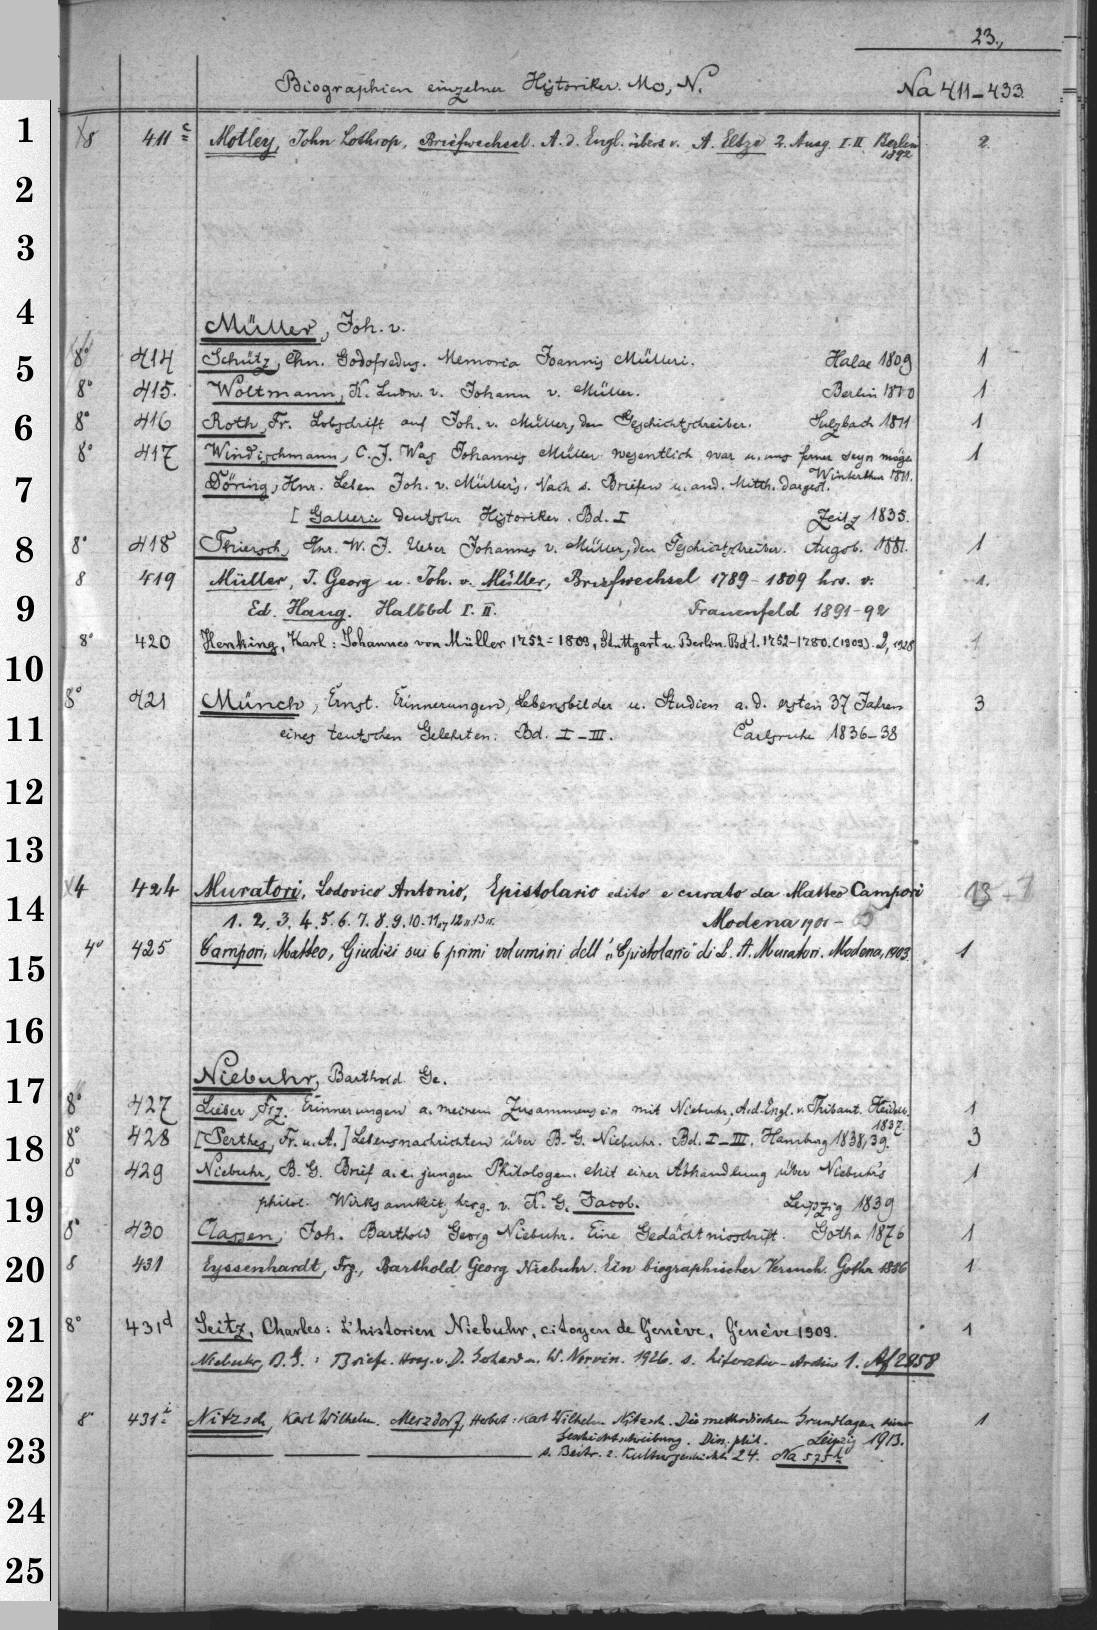 23.,
Biographien einzelner Historiker. Mo, N. Na 411-433
1 8 411 c Motley, John Lothrop, Briefwechsel. A. d. Engl. übers v. A. Eltze 2. Ausg. I. II Berlin 2
1892
2
3
4 Müller, Joh. v.
5 8° 414 Schütz, Chn. Godofredus. Memoria Joannis Mülleri. Halae 1809 1
8° 415. Woltmann, K. Ludw. v. Johann v. Müller. Berlin 1810 1
6 8° 416 Roth, Fr. Lobschrift auf Joh. v. Müller, den Geschichtschreiber. Sulzbach 1811 1
8° 417 Windischmann, C. J. Was Johannes Müller wesentlich war u. uns ferner seyn möge 1
Winterthur 1811.
7 Döring, Hnr. Leben Joh. v. Müller's. Nach s. Briefen u. and. Mitth. dargest.
[Gallerie deutscher Historiker. Bd. I Zeitz 1835.
8 8° 418 Thiersch, W. J. Ueber Johannes v. Müller, den Geschichtschreiber. Augsb. 1881. 1
8 419 Müller, J. Georg u. Joh. v. Müller, Briefwechsel 1789-1809 hrs. v. 1.
9 Ed. Haug. Halbbd I. II. Frauenfeld 1891-92
8° 420 Henking, Karl: Johannes von Müller 1752=1809, Stuttgart u. Berlin. Bd 1. 1752-1780. (1909). 2, 1928 1
10
8° 421 Münch, Ernst. Erinnerungen, Lebensbilder u. Studien a. d. ersten 37 Jahren 3
11 eines teutschen Gelehrten. Bd. I-III. Carlsruhe 1836-38
12
13
14 4 424 Muratori, Lodovico Antonio, Epistolario edito e curato da Matteo Campori 13
1. 2. 3. 4. 5. 6. 7. 8. 9. 10. 11. 12. 13. Modena 1901-
15 4° 425 Campori, Matteo, Giudizi sui 6 primi volumini dell' „Epistolario" di L. A. Muratori. Modena, 1903. 1
16
17 Niebuhr, Barthold Ge.
8° 427 Lieber, Frz. Erinnerungen a. meinem Zusammensein mit Niebuhr, A. d. Engl. v. Thibaut. Heidelb. 1
1837.
18 8° 428 [Perthes, Fr. u. A.] Lebensnachrichten über B. G. Niebuhr. Bd. I-III, Hamburg 1838,39. 3
8° 429 Niebuhr, B. G. Brief a. e. jungen Philologen. Mit einer Abhandlung über Niebuhr's 1
19 philol. Wirksamkeit, hrsg. v. K. G. Jacob. Leipzig 1839
8° 430 Classen, Joh. Barthold Georg Niebuhr. Eine Gedächtnisschrift. Gotha 1876 1
20 8 431 Eyssenhardt, Frz., Barthold Georg Niebuhr. Ein biographischer Versuch. Gotha 1886 1
21 8° 431 d Seitz, Charles: L'historien Niebuhr, citoyen de Genève, Genève 1909. 1
Niebuhr, B. G.: Briefe. Hrsg. v. D. Gerhard u. W. Norvin. 1926. s. Literatur-Archiv 1. Af 2958
22
8° 431 i Nitzsch, Karl Wilhelm. Merzdorf, Herbert: Karl Wilhelm Nitzsch. Die methodischen Grundlagen seiner 1
Geschichtschreibung. Diss. phil. Leipzig 1913.
23 s. Beitr. z. Kulturgeschichte 24. Na 575
24
25